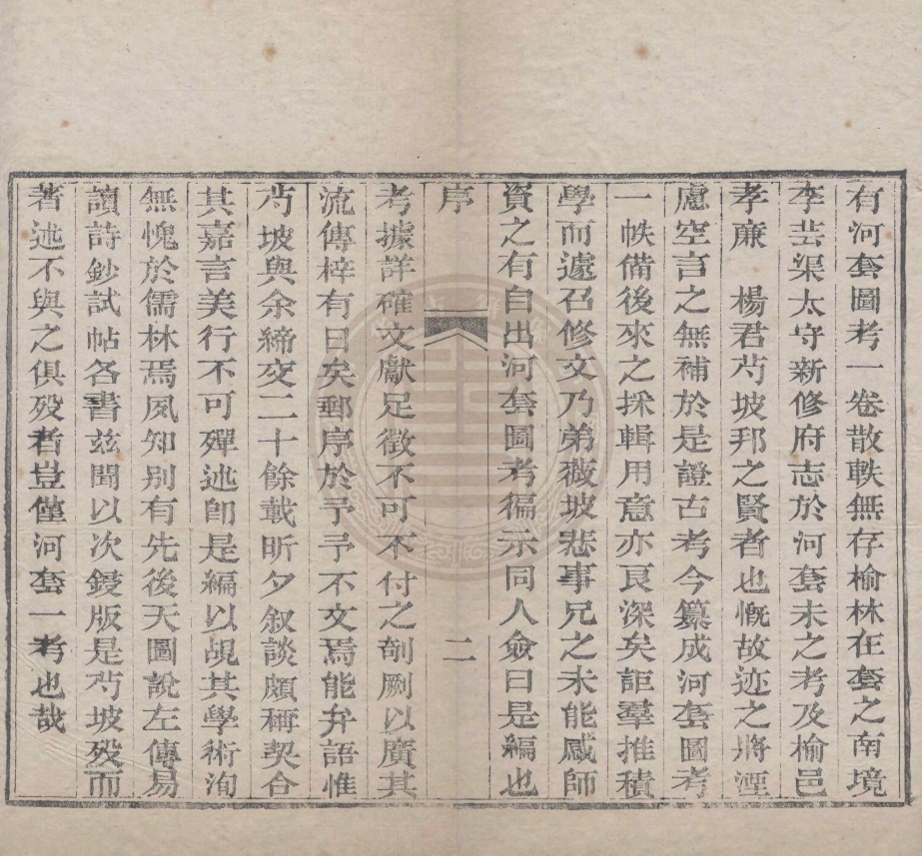 有河套圖考一卷散軼無存榆林在套之南境
李芸渠太守新修府志於河套未之考及榆邑
孝廉 楊君芍坡邦之賢者也慨故迹之將湮
慮空言之無補於是證古考今纂成河套圖考
一帙備後來之採輯用意亦良深矣詎羣推積
學而遽召修文乃弟薇坡悲事兄之未能感師
資之有自出河套圖考徧示同人僉曰是編也
序
二
考據詳確文獻足徵不可不付之剞劂以廣其
流傳梓有日矣郵序於予予不文焉能弁語惟
芍坡與余締交二十餘載昕夕叙談頗稱契合
其嘉言美行不可殫述卽是編以覘其學術洵
無愧於儒林焉夙知别有先後天圖說左傳易
讀詩鈔試帖各書兹聞以次鋟版是芍坡歿而
著述不與之俱歿者豈僅河套一考也哉